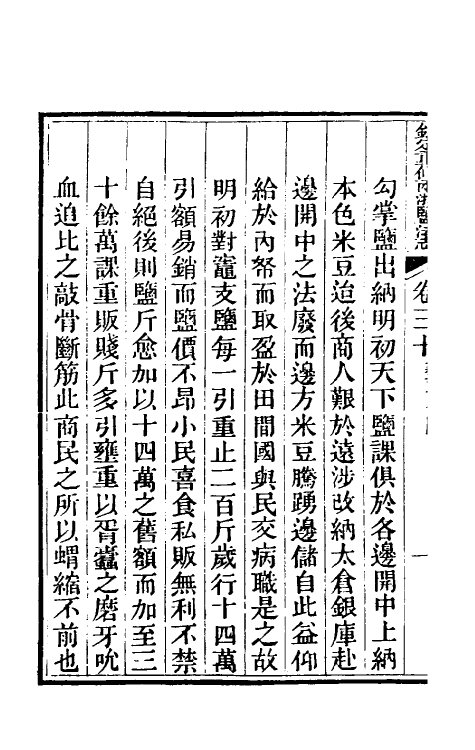 勾掌鹽出納明初天下鹽課俱於各邊開中上納
本色米豆迨後商人艱於遠涉改納太倉銀庫赴
邊開中之法廢而邊方米豆騰踴邊儲自此益仰
給於內帑而取盈於田間國與民交病職是之故
明初對竈支鹽每一引重止二百斤歲行十四萬
引額易銷而鹽價不昂小民喜食私販無利不禁
自絕後則鹽斤愈加以十四萬之舊額而加至三
十餘萬課重販賤斤多引壅重以胥蠹之磨牙吮
血迫比之敲骨斷筋此商民之所以蝟縮不前也